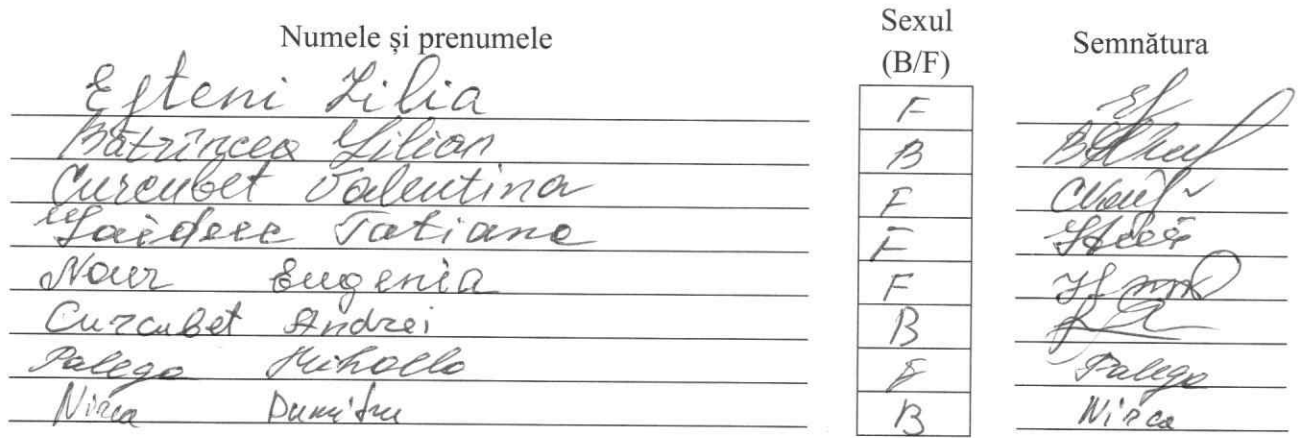 Numele și prenumele Sexul (B/F) Semnătura
Efteni Lilia F
Bătrîncea Lilian B
Curcubet Valentina F
Tatiana F
Nour Eugenia F
Curcubet Andrei B
Palega Mihaella F Palega
Nirca Dumitru B Nirca